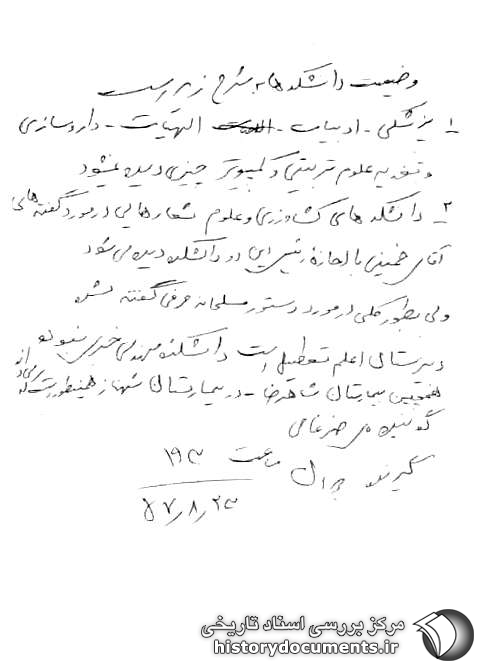 وضعیت دانشکده‌ها به شرح زیر است
۱ـ پزشکی - ادبیات - الهیات - داروسازی
و تغذیه علوم تربیتی و کمپیوتر چیزی دیده نمیشود
۲ـ دانشکده های کشاورزی و علوم شعارهایی در مورد گفته های
آقای خمینی با اجازه رئیس این دو دانشکده دیده می شود
ولی بطور کلی در مورد دستور مسلحانه حرفی گفته نشده
دبیرستان اعلم تعطیل است دانشکده مهندسی خبری نبوده
همچنین بیمارستان شاهرضا - در بیمارستان شهناز همینطور است که
گوینده ضرغامی
گیرنده ساعت ۱۹۳۰
۵۷٫۸٫۲۳
مرکز بررسی اسناد تاریخی
historydocuments.ir